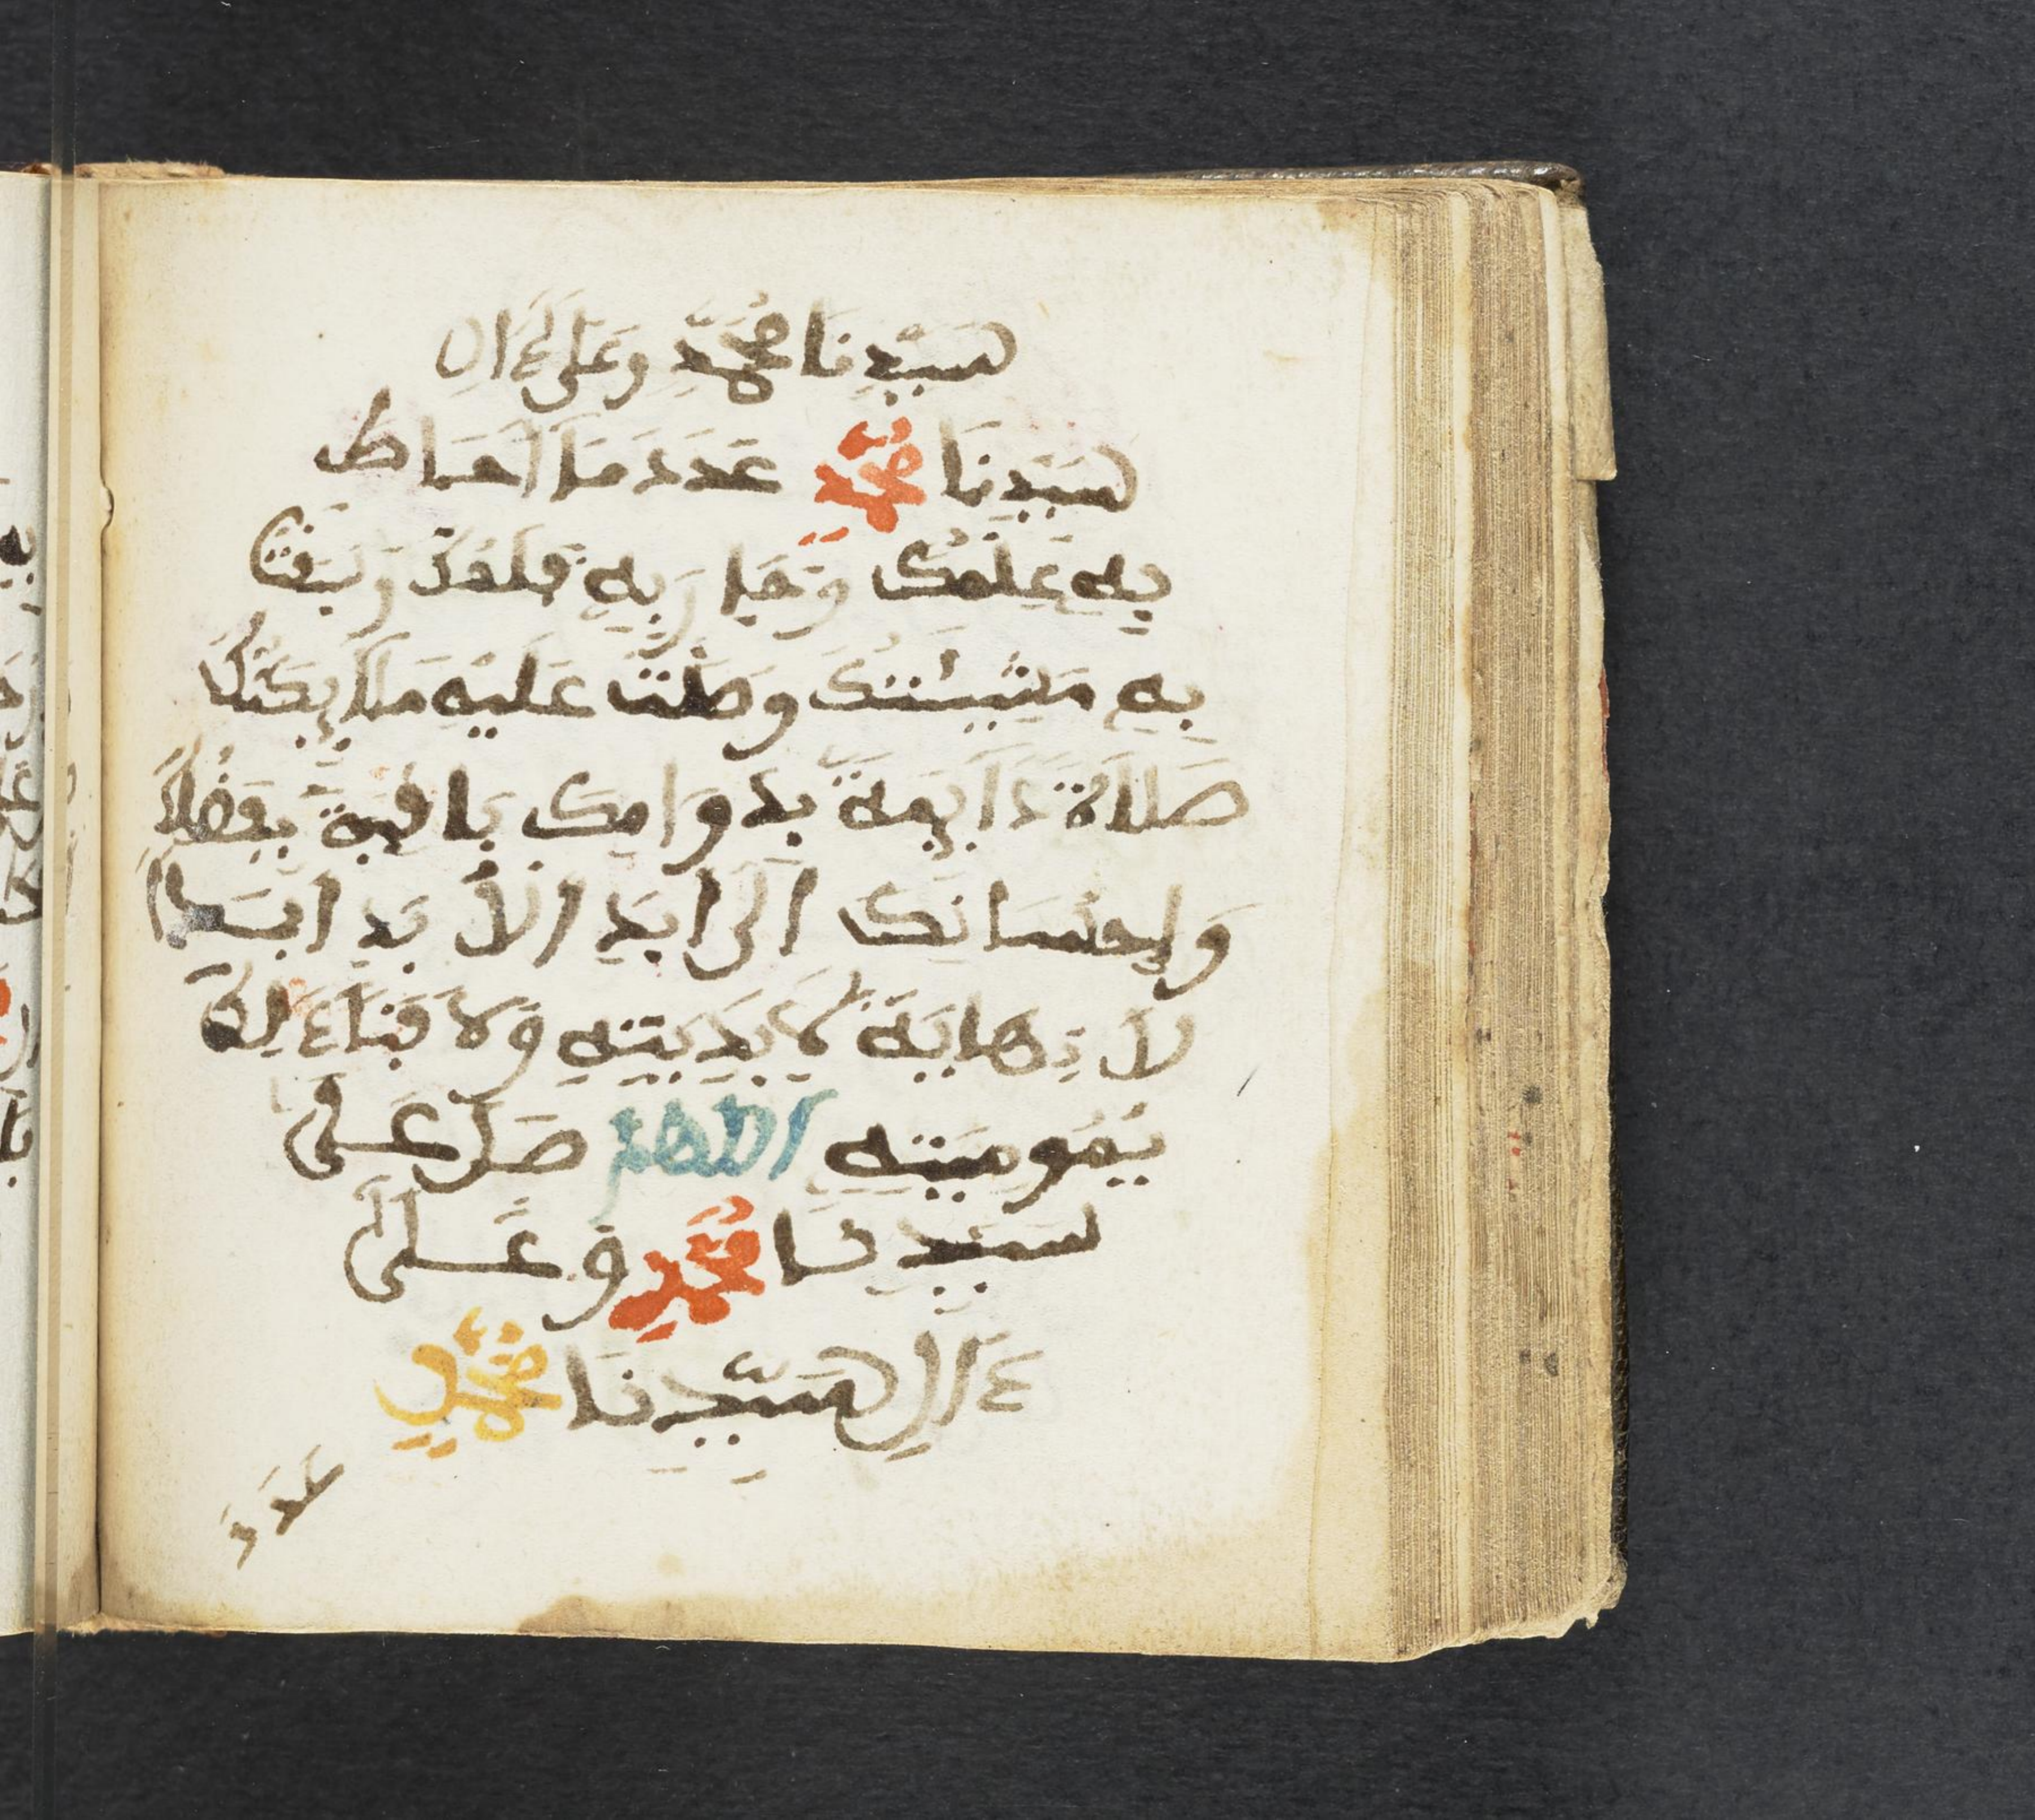 سَيِّدِنَا مُحَمَّدٍ وَعَلَىٰ ءَالِ
سَيِّدِنَا مُحَمَّدٍ عَدَدَ مَا اَحَاطَ
بِهِ عِلْمُكَ وَجَرَ بِهِ قَلَمُكَ وَسَبَقَتْ
بِهِ مَشِيئَتُكَ وَصَلَّتْ عَلَيْهِ مَلَايِكَتُكَ
صَلَاةً دَايِمَةً بِدَوَامِكَ بَاقِيَةً بِفَضْلِكَ
وَإِحْسَانِكَ الَىٰ ابَدِ الْأَبَدِ ابَدًا
لَا نِهَايَةَ لِأَبَدِيَّتِهِ وَلَا فَنَاءَ لِدَ
يْمُومِيَّتِهِ اللَّهُمَّ صَلِّ عَلَى
سَيِّدِنَا مُحَمَّدٍ وَعَلَىٰ
ءَالِ سَيِّدِنَا مُحَمَّدٍ
عَدَدَ